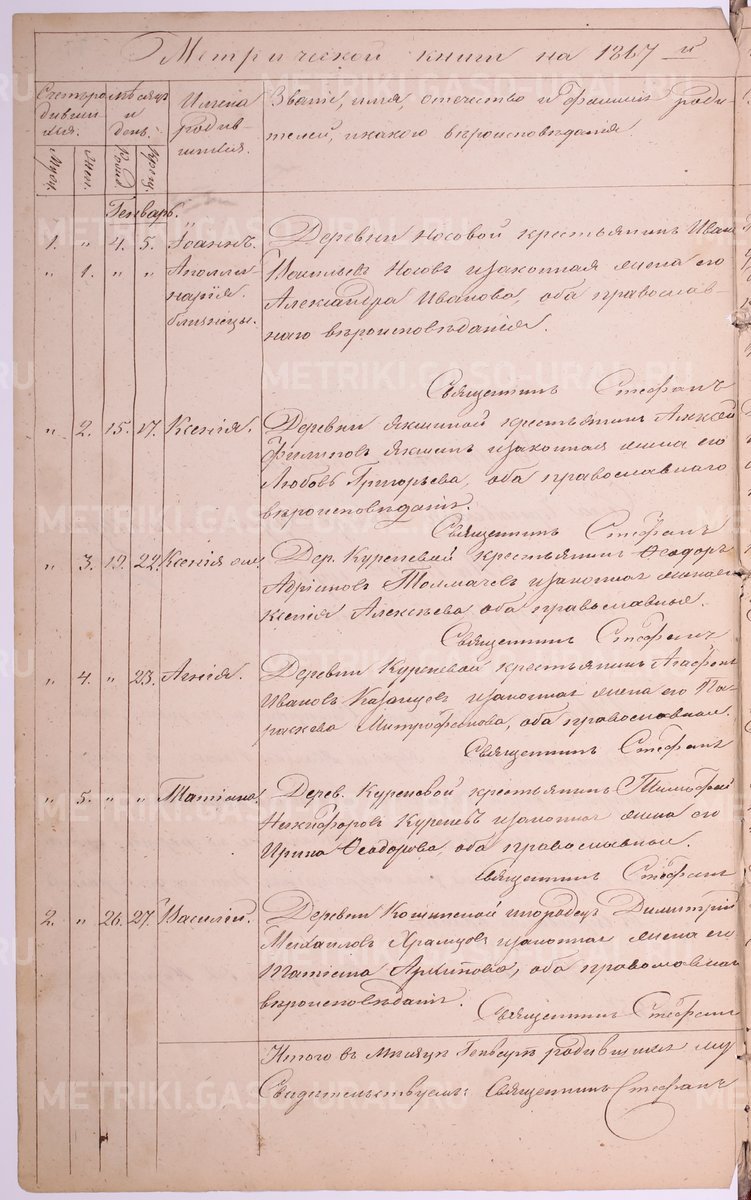 Метрической книги на 1867 й
Счетъ родившихся.
Муж.
Жен.
Месяцъ и день.
Рожд.
Крещ.
Имена родившихся.
Званіе, имя, отечество и фамилія роди-
телей, и какого вѣроисповѣданія.
Генварь.
1. " 4. 5. Іоаннъ. Деревни Носовой крестьянинъ Иванъ
" 1. " " Аполли Васильевъ Носовъ и законная жена его
нарія. Александра Иванова, оба православ-
близнецы. наго вѣроисповѣданія.
Священникъ Стефанъ
" 2. 15. 17. Ксенія. Деревни Якшиной крестьянинъ Алексѣй
Филиповъ Якшинъ и законная жена его
Любовь Григорьева, оба православнаго
вѣроисповѣданія.
Священникъ Стефанъ
" 3. 19. 22. Ксенія Дер. Куреневой крестьянинъ Ѳеодоръ
Адріановъ Толмачевъ и законная жена его
Ксенія Алексѣева оба православныя.
Священникъ Стефанъ
" 4. " 23. Агнія. Деревни Куреневой крестьянинъ Агафонъ
Ивановъ Казанцовъ и законная жена его Па-
раскева Митрофанова, оба православные.
Священникъ Стефанъ
" 5. " " Татіана. Дерев. Куреневой крестьянинъ Тимофей
Никифоровъ Куреневъ и законная жена его
Ирина Ѳеодорова, оба православные.
Священникъ Стефанъ
2. " 26. 27. Василій. Деревни инородецъ Димитрій
Михаиловъ Храмцовъ и законная жена его
Татіана Архипова, оба православнаго
вѣроисповѣданія.
Священникъ Стефанъ
Итого въ Месяцѣ Генварѣ родившихся му
Свидѣтельствуемъ: Священникъ Стефанъ
METRIKI.GASO-URAL.RU